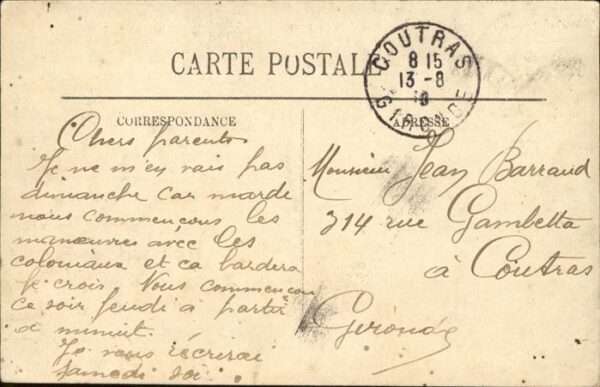 CARTE POSTALE
COUTRAS
8 15
13 -8
10
GIRONDE
CORRESPONDANCE
ADRESSE
Chers parents
Je ne m'en vais pas
dimanche car marde
nous commençons les
manœuvres avec les
coloniaux et ca bardera
je crois. Nous commençon
ce soir jeudi a partir
de minuit.
Je vous écrirai
Samedi soi
Monsieur Jean Barraud
314 rue Gambetta
à Coutras
Gironde